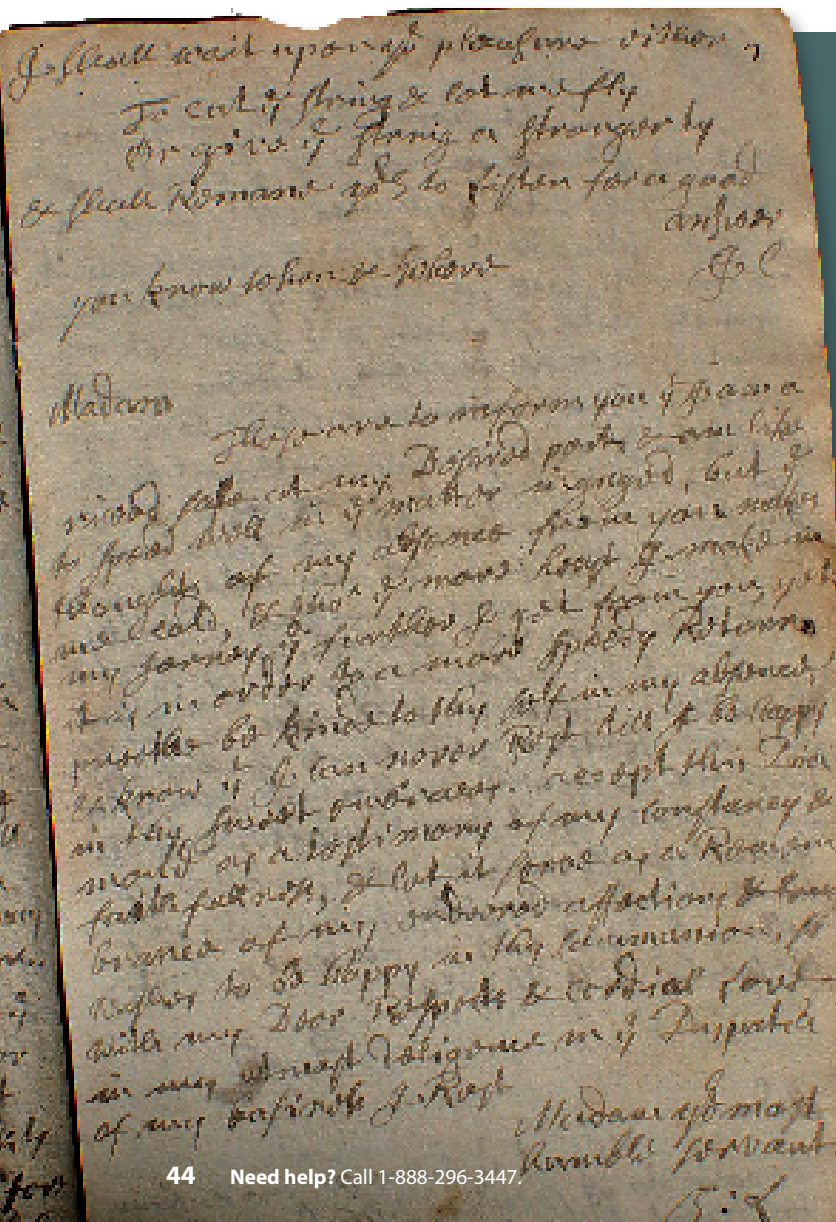 I shall wait upon yr pleasure either
To cut ye string & let me fly
Or give ye string a stronger ty
& shall Remane yrs to listen for a good
answer
you know whome & where
J C
Madam
These are to inform you yt I am a
rived safe at my Desired port, & am like
to speed well in ye matter ingaged, but ye
thoughts of my absence from you makes
me cold, & tho' ye more hast I make in
my Jorney ye further I get from you, yet
it is in order to a more speedy Returne
be kinde to thy self in my absence,
& know yt I can never Rest till I be happy
in thy sweet embraces. accept this
as a testimony of my constancy &
faithfullness, & let it serve as a Remem
brance of my endeered affections &
to be happy in thy Communion, So
with my Dear Respects & cordial Love
in my utmost Diligence in ye Dispatch
of my I Rest
Madam yr most
humble servant
44 Need help? Call 1-888-296-3447.